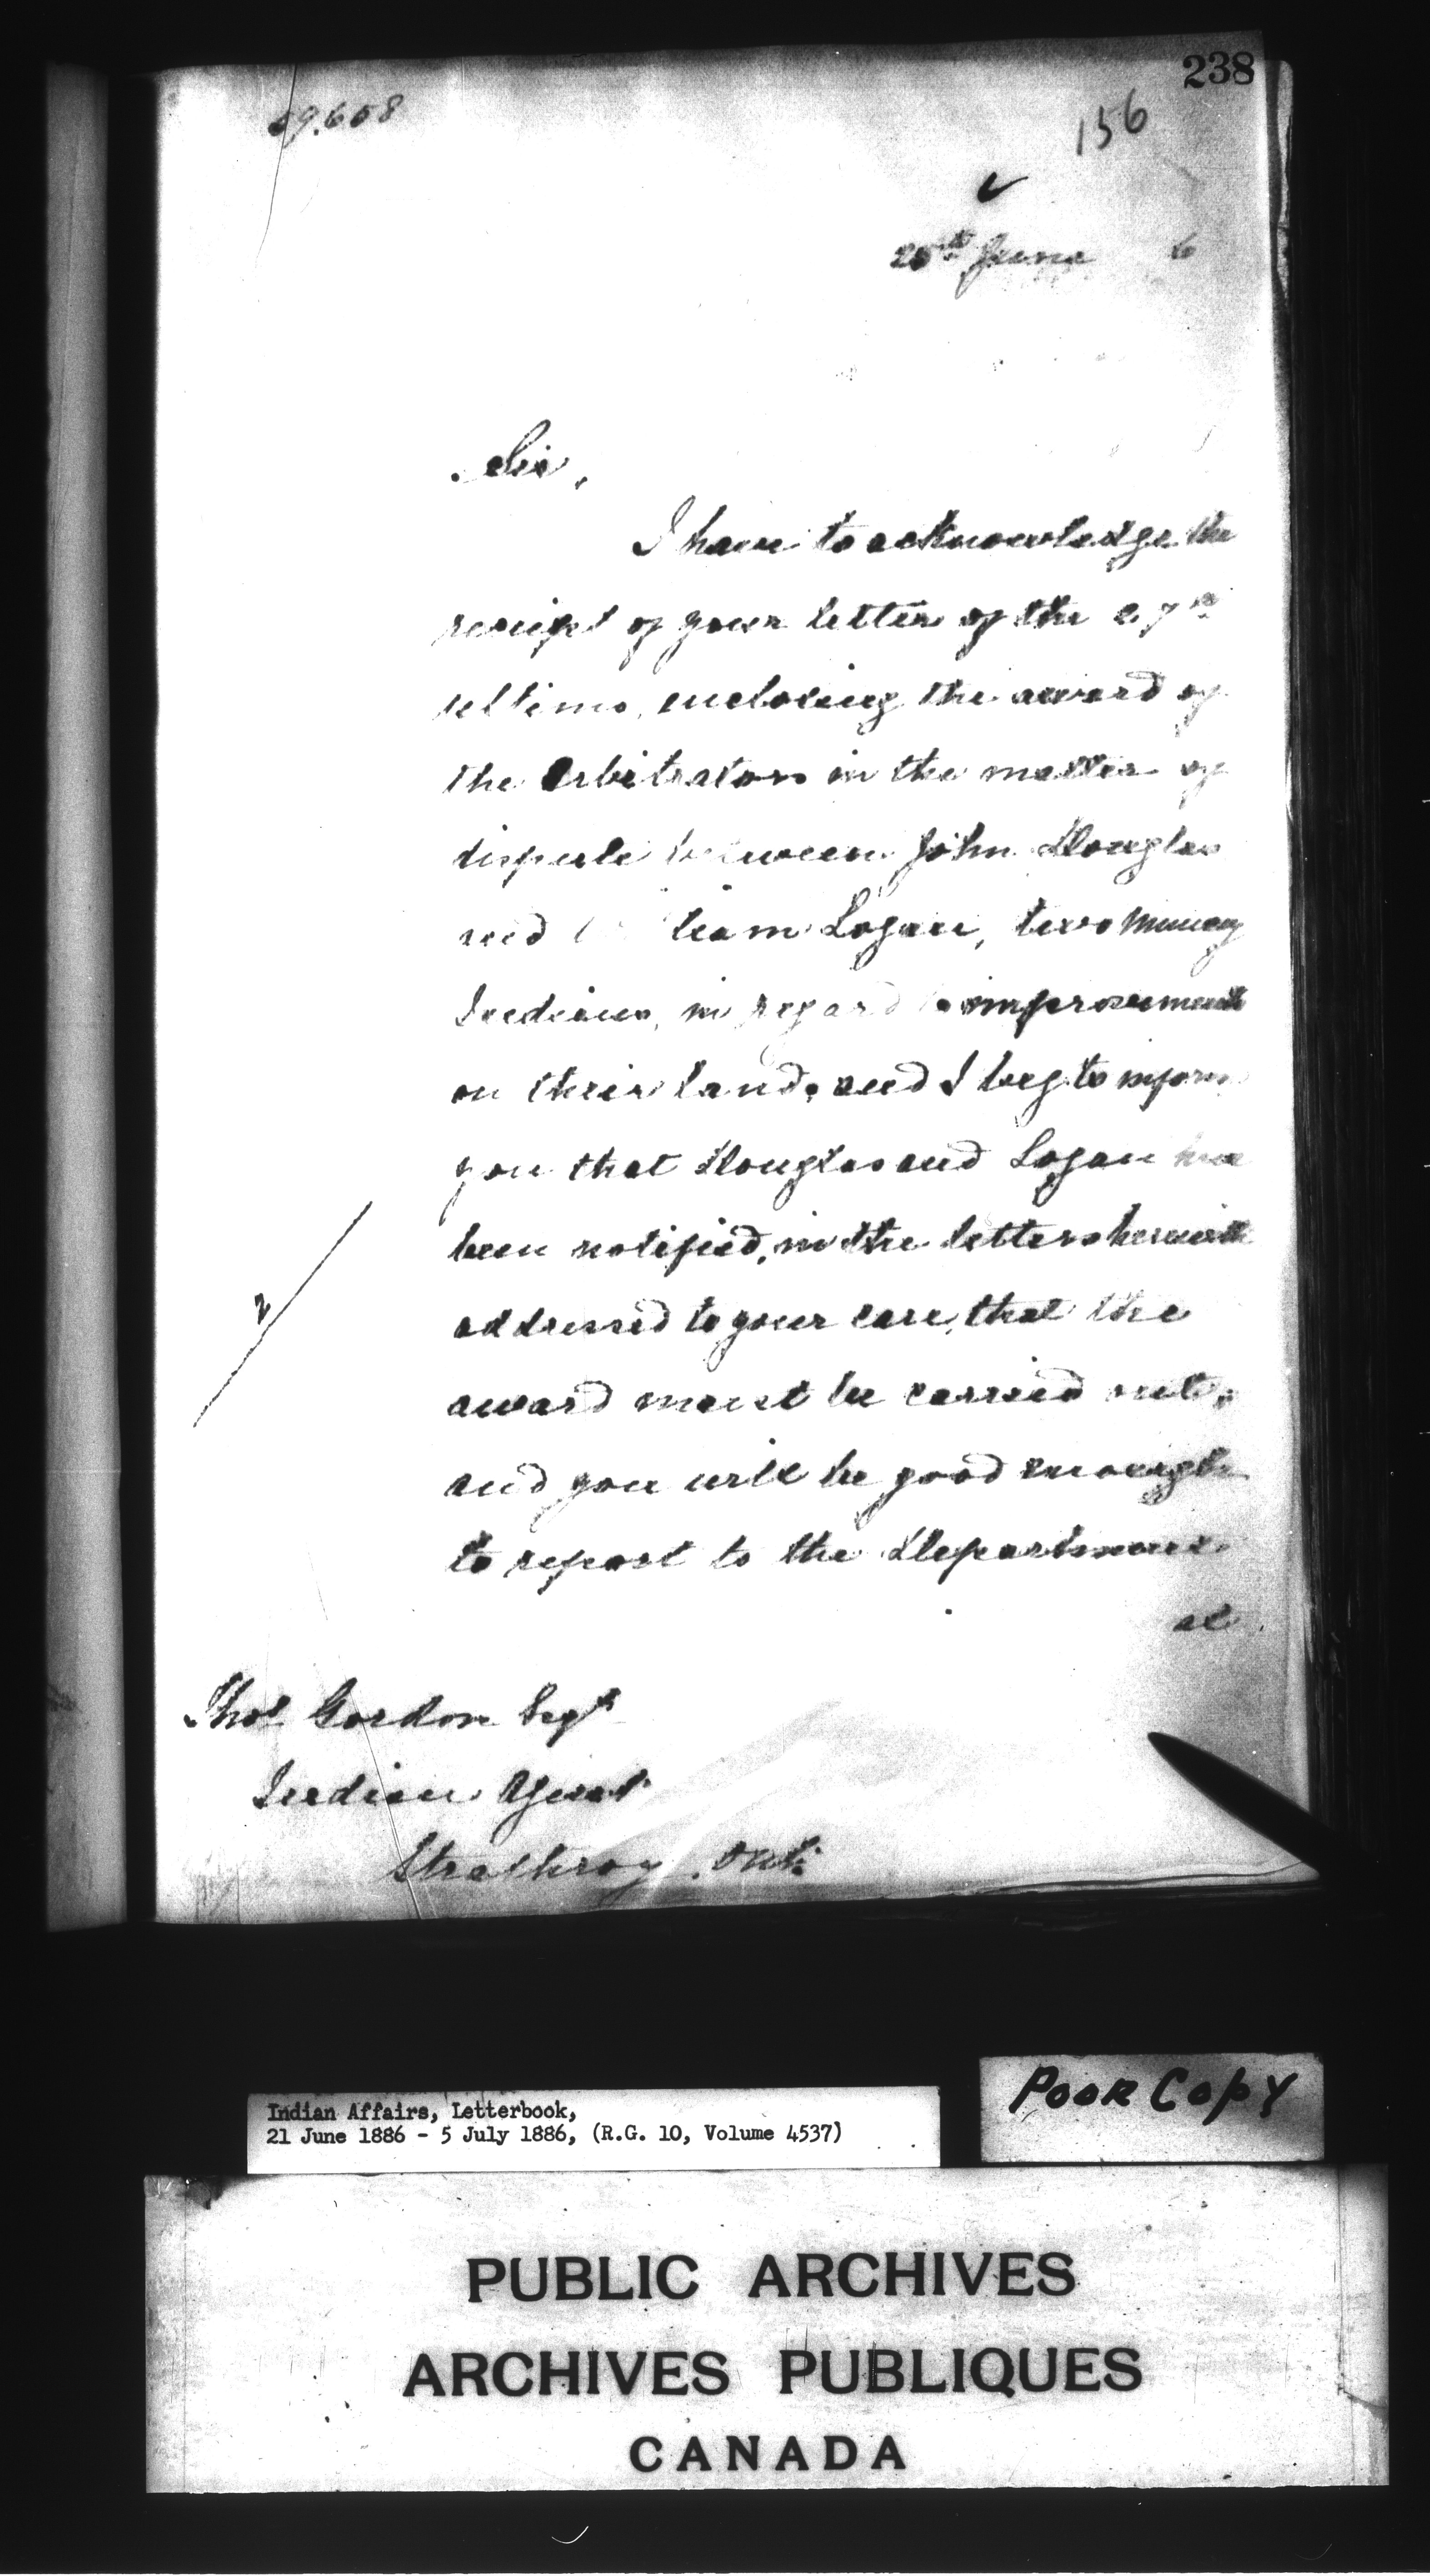 238
156
25th June 6
Sir,
I have to acknowledge the
receipt of your letter of the 27th
ultimo, enclosing the award of
the Arbitrators in the matter of
dispute between John Douglas
and William Logan, two Muncey
Indians, in regard to improvements
on their land, and I beg to inform
you that Douglas and Logan have
been notified, in the letters herewith
addressed to your care, that the
award must be carried out,
and you will be good enough
to report to the Department
at
2
Thos Gordon Esqr
Indian Agent
Strathroy. Ont:
Poor Copy
Indian Affairs, Letterbook,
21 June 1886 - 5 July 1886, (R.G. 10, Volume 4537)
PUBLIC ARCHIVES
ARCHIVES PUBLIQUES
CANADA